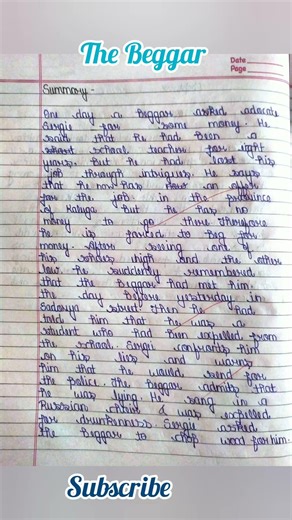 The Beggar
Date
Page
Summary -
One day a beggar asked advocate
Sergie for some money. He
said that he had been a
school teacher for eight
years. But he had lost his
job through intrigues. He says
that he now has an offer
for the job in the province
of Kaluga but he has no
money to go there. Therefore
he is forced to beg for
money. After seeing one of
his shoes high and the other
low. he suddenly remembered
that the beggar had met him
the day before yesterday in
Sadovya street. Then he had
told him that he was a
student who had been expelled from
the school. Sergei confronts him
on his lies and warns
him that he would send for
the police. The beggar admits that
he was lying. He sang in a
Russian choir & was expelled
for drunkenness Sergie asked
the beggar to chop wood for him.
Subscribe